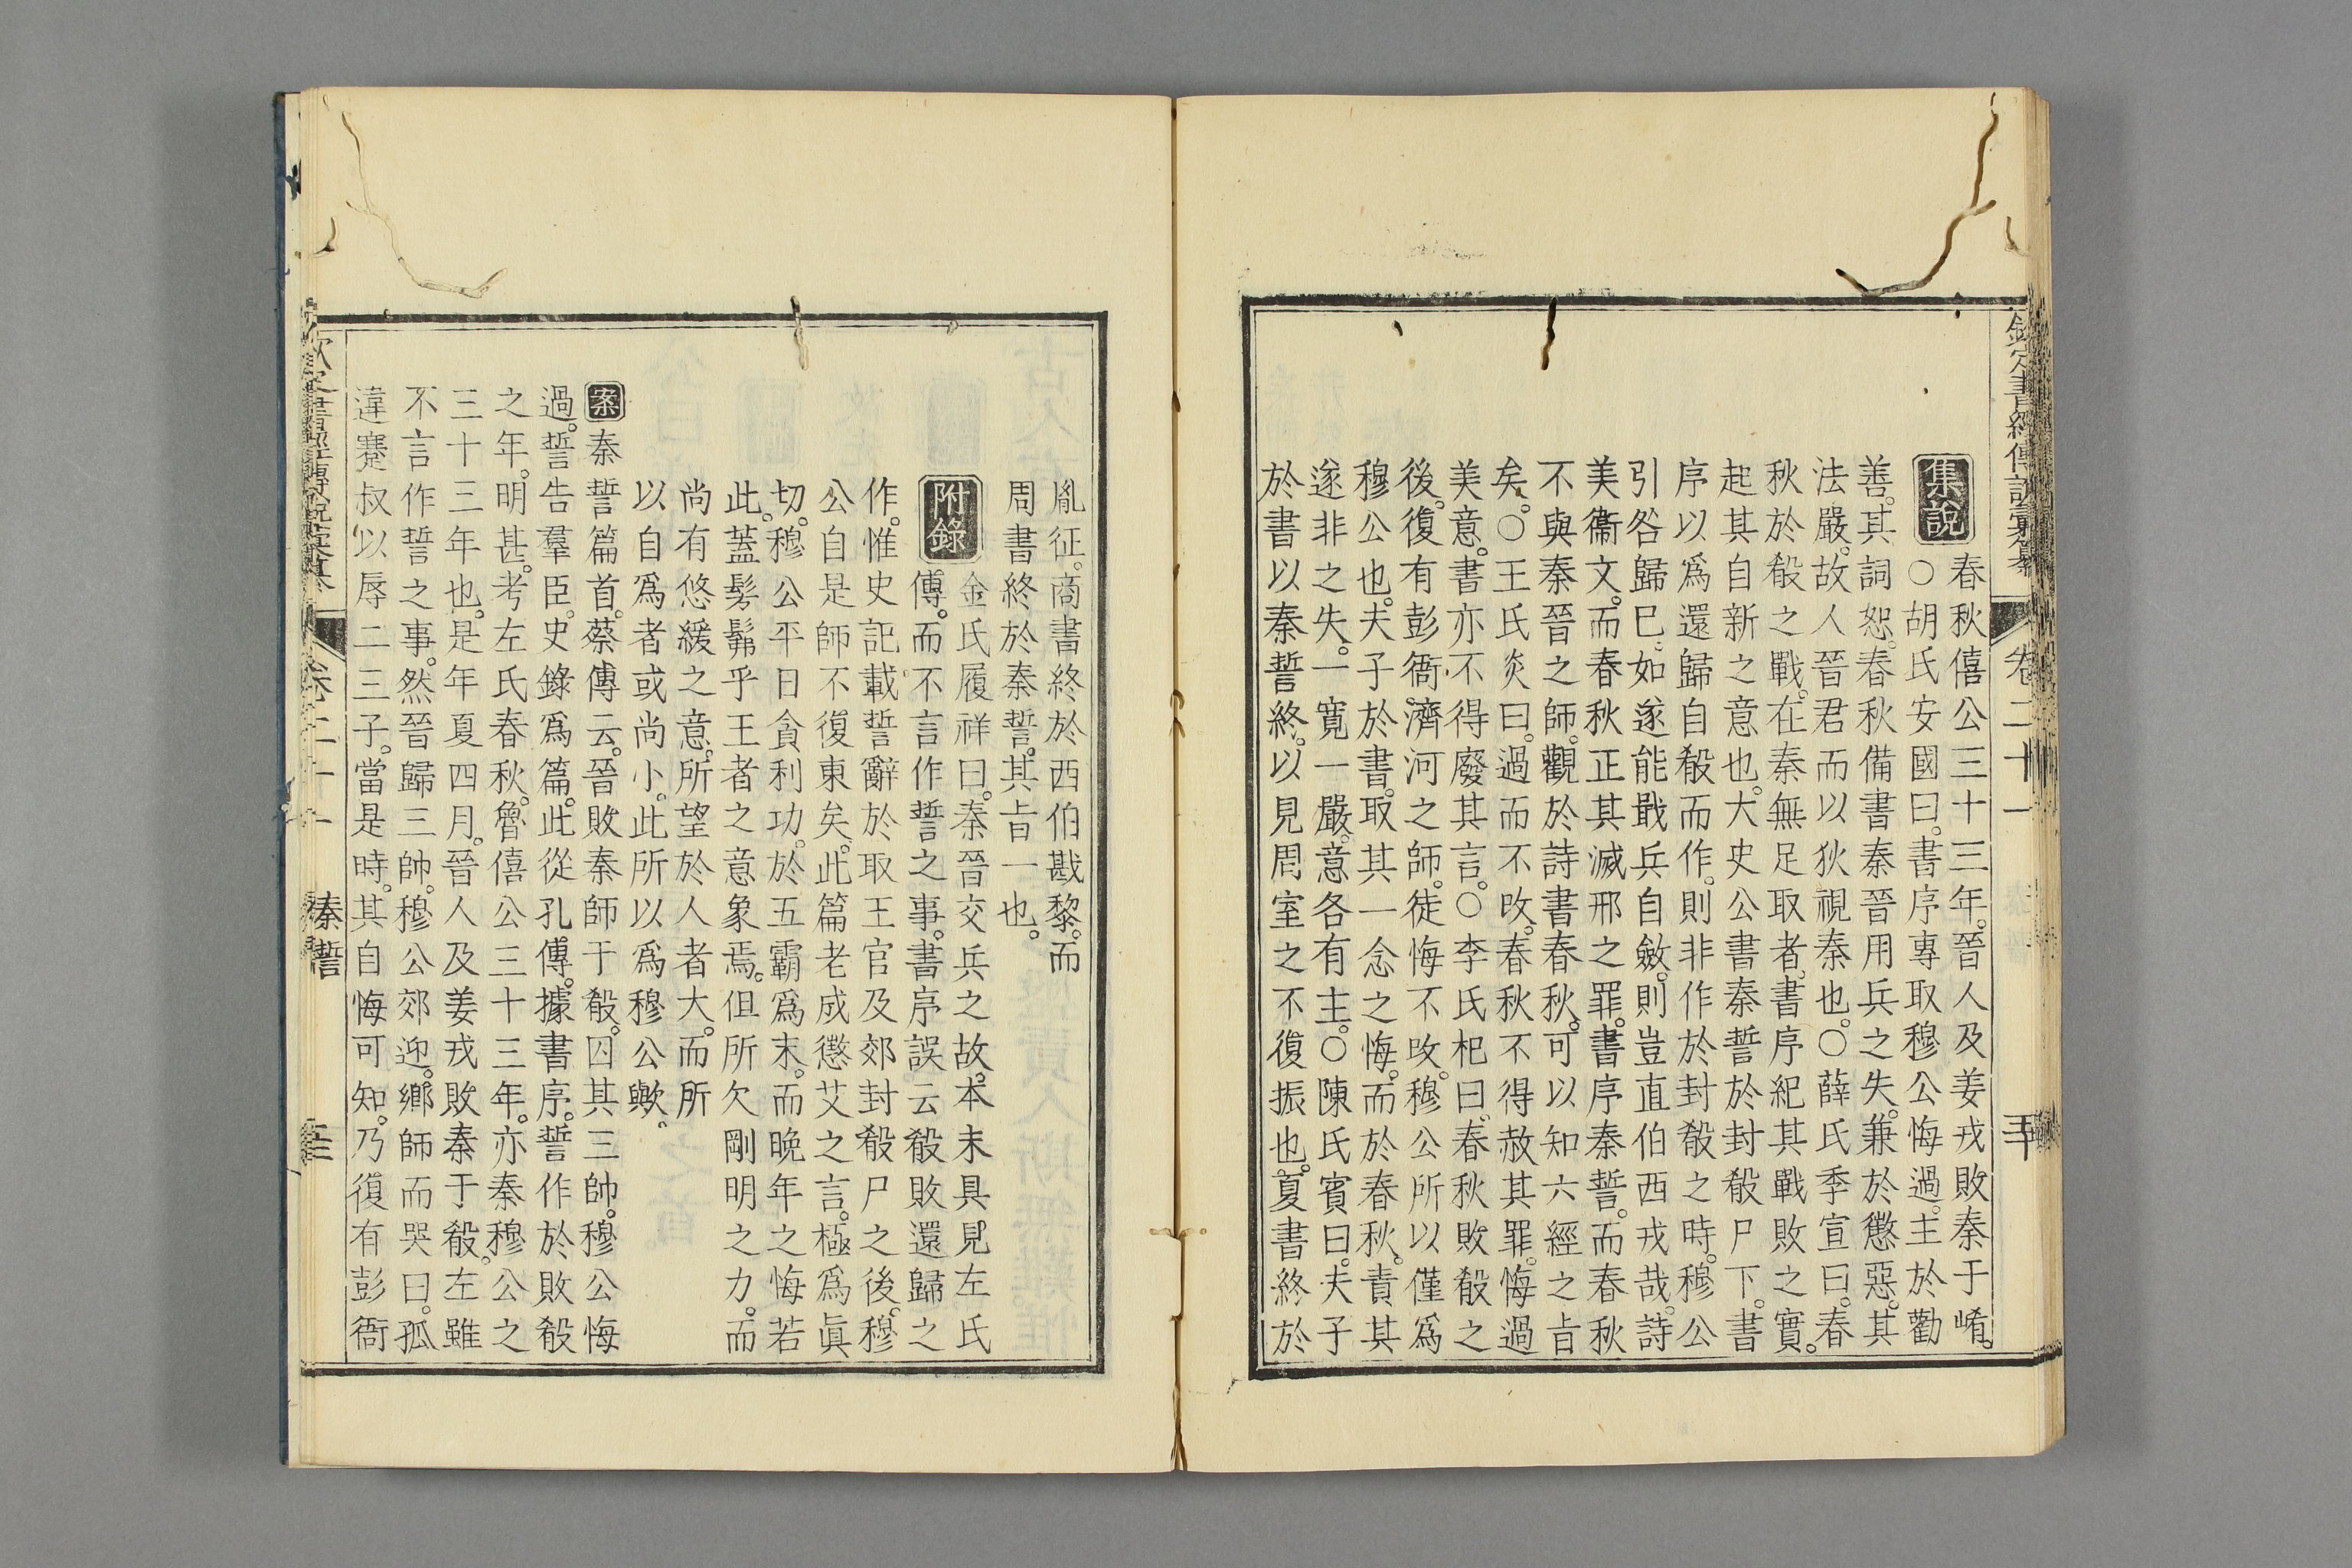 欽定書經傳說彙纂 卷二十一
集說
春秋僖公三十三年。晉人及姜戎敗秦于崤。
○胡氏安國曰。書序專取穆公悔過。主於勸
善。其詞恕。春秋備書秦晉用兵之失。兼於懲惡。其
法嚴。故人晉君而以狄視秦也。○薛氏季宣曰。春
秋於殽之戰。在秦無足取者。書序紀其戰敗之實。
起其自新之意也。大史公書秦誓於封殽尸下。書
序以爲還歸自殽而作。則非作於封殽之時。穆公
引咎歸巳。如遂能戢兵自斂。則豈直伯西戎哉。詩
美衞文。而春秋正其滅邢之罪。書序秦誓。而春秋
不與秦晉之師。觀於詩書春秋。可以知六經之旨
矣。○王氏炎曰。過而不攺。春秋不得赦其罪。悔過
美意。書亦不得廢其言。○李氏杞曰。春秋敗殽之
後。復有彭衙。濟河之師。徒悔不攺。穆公所以僅爲
穆公也。夫子於書。取其一念之悔。而於春秋。責其
遂非之失。一寬一嚴。意各有主。○陳氏賓曰。夫子
於書以秦誓終。以見周室之不復振也。夏書終於
胤征。商書終於西伯戡黎。而
周書終於秦誓。其旨一也。
附錄
金氏履祥曰。秦晉交兵之故。本末具見左氏
傳。而不言作誓之事。書序誤云殽敗還歸之
作。惟史記載誓辭於取王官及郊封殽尸之後。穆
公自是師不復東矣。此篇老成懲艾之言。極爲眞
切。穆公平日貪利功。於五霸爲末。而晚年之悔若
此。蓋髣髴乎王者之意象焉。但所欠剛明之力。而
尚有悠緩之意。所望於人者大。而所
以自爲者或尚小。此所以爲穆公歟。
案秦誓篇首。蔡傳云。晉敗秦師于殽。囚其三帥。穆公悔
過。誓告羣臣。史錄爲篇。此從孔傳。據書序。誓作於敗殽
之年。明甚。考左氏春秋。魯僖公三十三年。亦秦穆公之
三十三年也。是年夏四月。晉人及姜戎敗秦于殽。左雖
不言作誓之事。然晉歸三帥。穆公郊迎。鄉師而哭曰。孤
違蹇叔以辱二三子。當是時。其自悔可知。乃復有彭衙
欽定書經傳說彙纂 卷二十一 秦誓